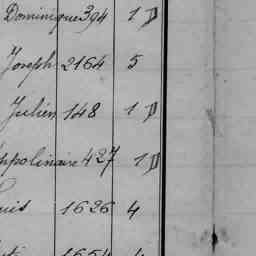 Dominique 394 1 D
Joseph 2164 5
Julien 148 1 D
ppolinaire 427 1 D
ouis 1626 4
1654